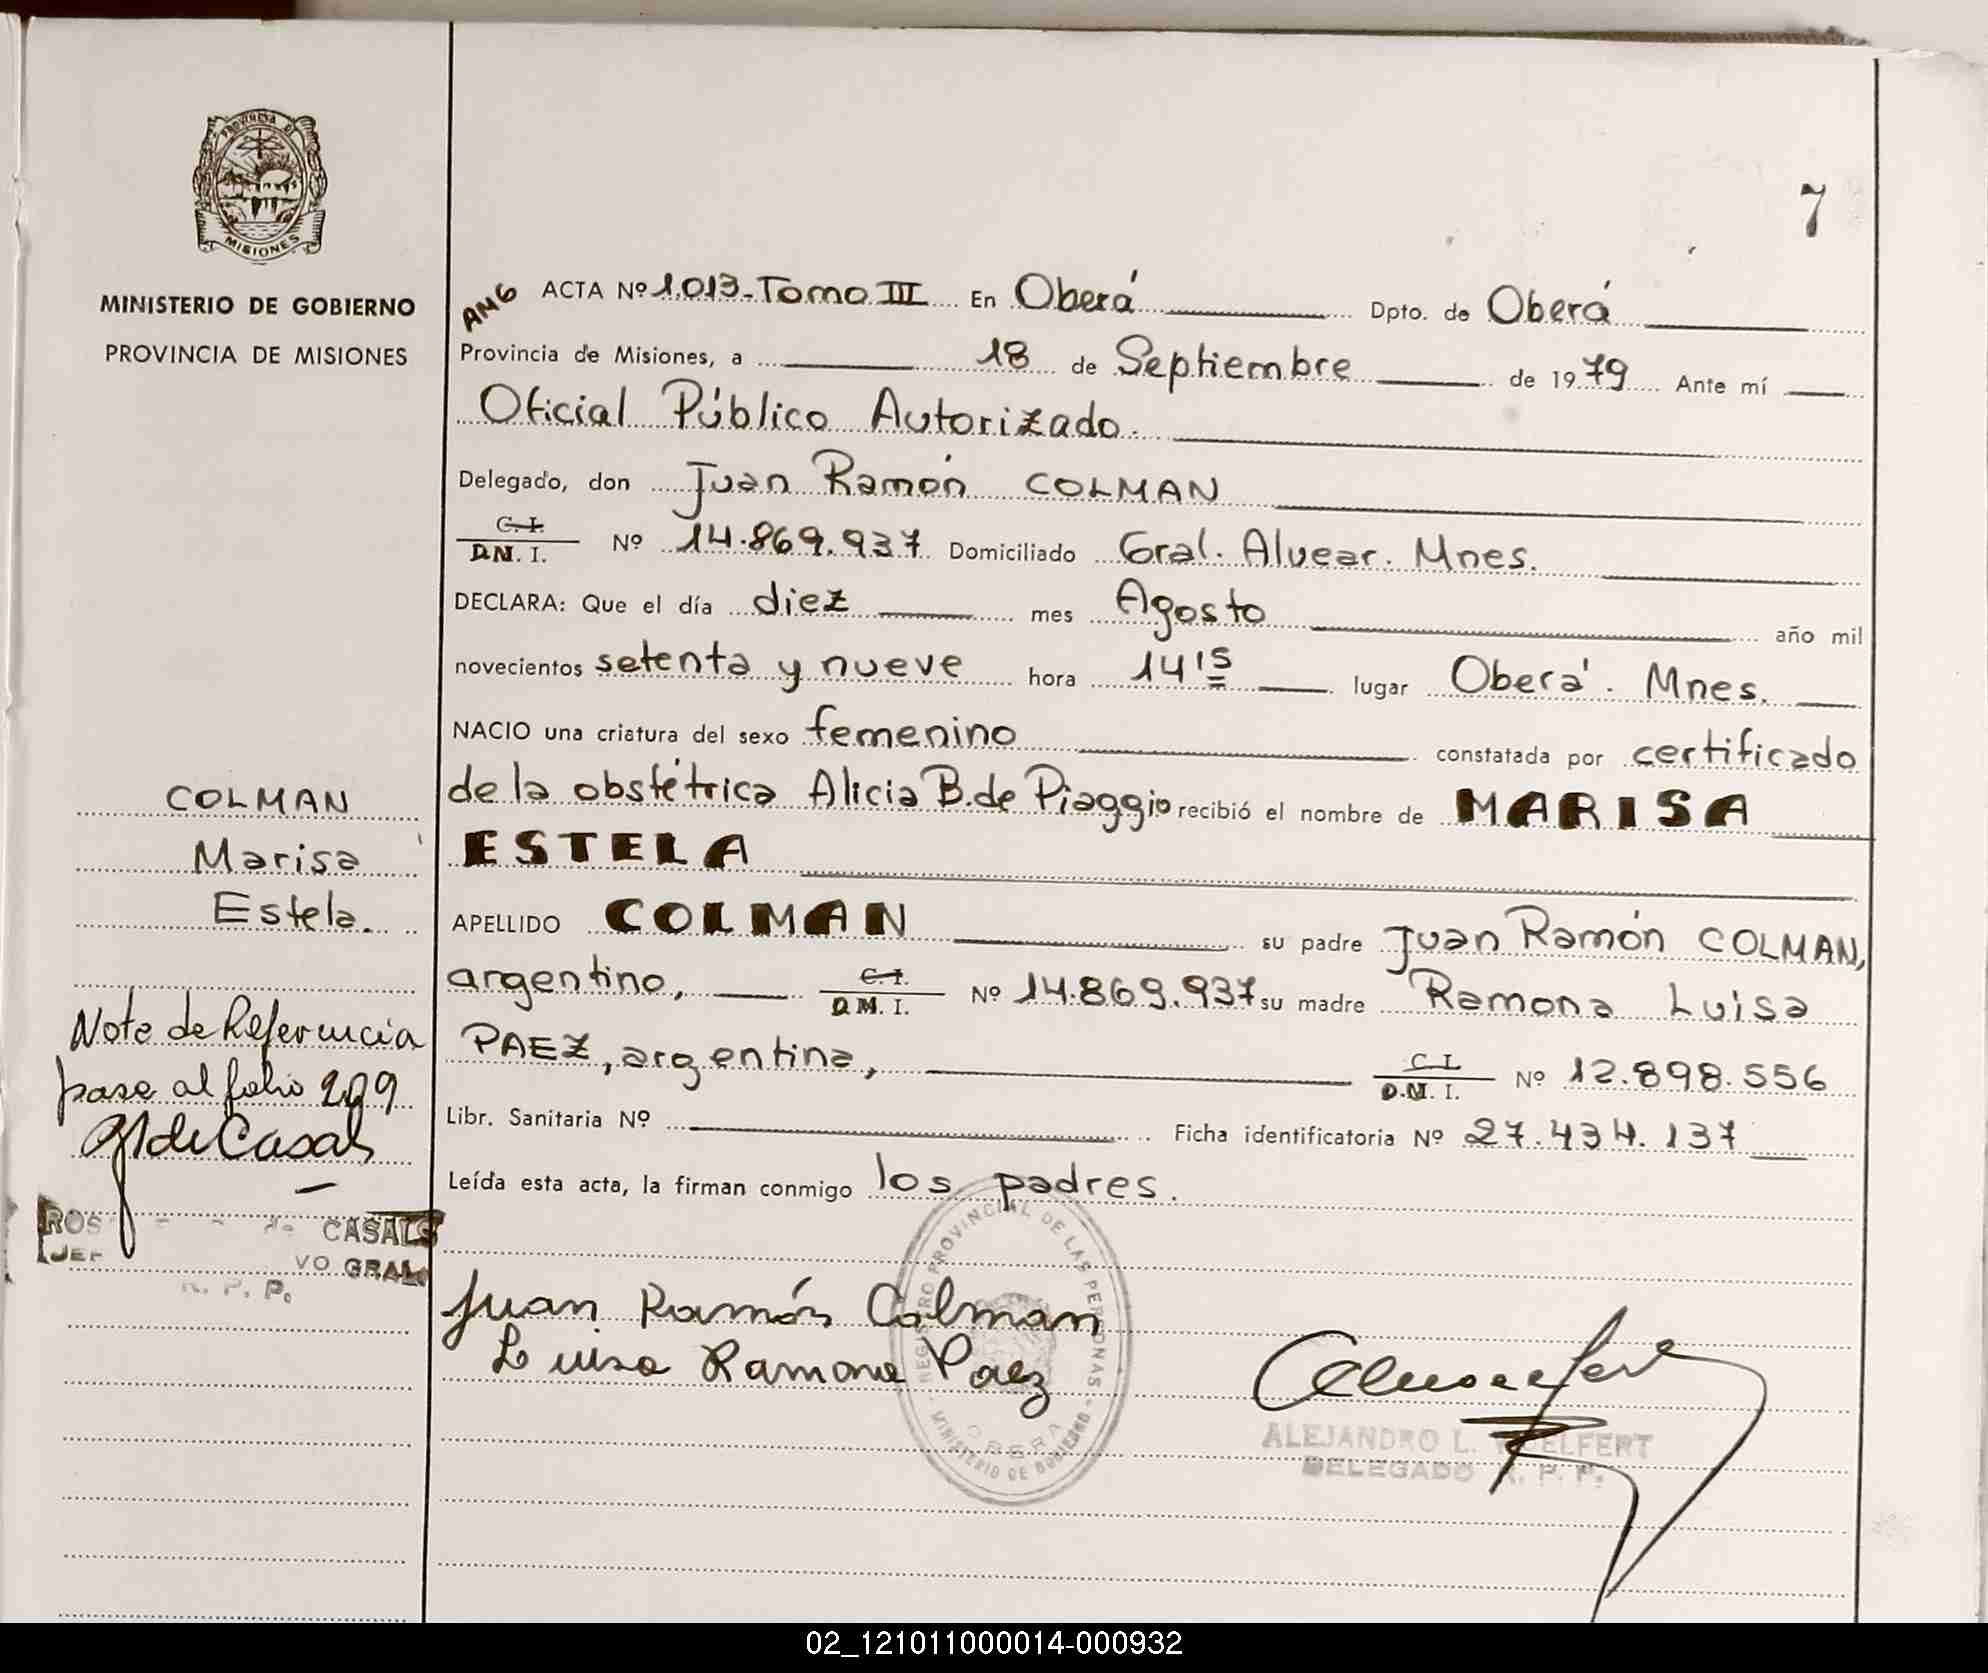 PROVINCIA DE
MISIONES
MINISTERIO DE GOBIERNO
PROVINCIA DE MISIONES
COLMAN
Marisa
Estela.
Nota de Referencia
pase al folio 209
de Casals
ROS de CASALS
JEF VO GRAL
R. P. P.
7
ANG ACTA Nº 1.013-Tomo III En Oberá Dpto. de Oberá
Provincia de Misiones, a 18 de Septiembre de 1979 Ante mí
Oficial Público Autorizado.
Delegado, don Juan Ramón COLMAN
C. I.
D.N. I. Nº 14.869.937 Domiciliado Gral. Alvear. Mnes.
DECLARA: Que el día diez mes Agosto año mil
novecientos setenta y nueve hora 14'15 lugar Oberá. Mnes.
NACIO una criatura del sexo femenino constatada por certificado
de la obstétrica Alicia B. de Piaggio recibió el nombre de MARISA
ESTELA
APELLIDO COLMAN su padre Juan Ramón COLMAN,
argentino, C. I. D.M. I. Nº 14.869.937 su madre Ramona Luisa
PAEZ, argentina, C. I. D.M. I. Nº 12.898.556
Libr. Sanitaria Nº Ficha identificatoria Nº 27.434.137
Leída esta acta, la firman conmigo los padres.
Juan Ramón Colman
Luisa Ramona Paez
REGISTRO PROVINCIAL DE LAS PERSONAS
OBERA
MINISTERIO DE GOBIERNO
ALEJANDRO L. WOELFERT
DELEGADO R. P. P.
02_121011000014-000932